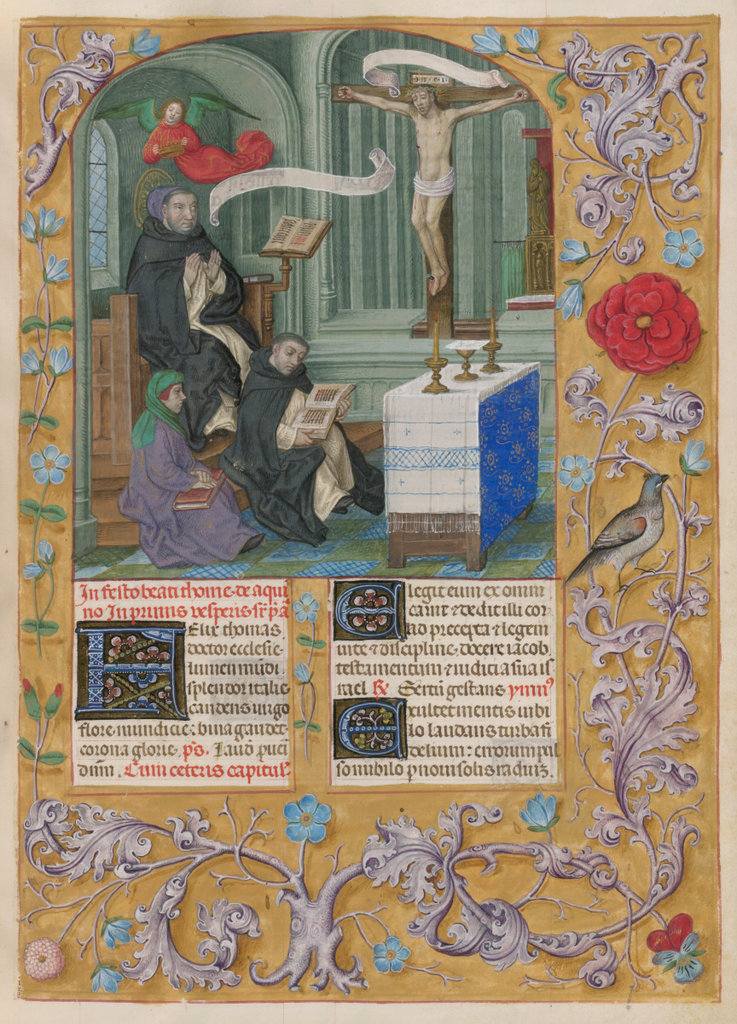 In festo beati thome de aqui
no In primis vesperis sup̄ p̄s̄ a
Felix thomas
doctor ecclesie
lumen mūdi
splendor italie
candens virgo
flore mundicie : bina gaudet
corona glorie. ps. Laudate pueri
dnm. Cum ceteris capitulū
Elegit eum ex omni
carne & dedit illi cor
am precepta & legem
vite & discipline, docere iacob
testamentum & iudicia sua is
rael R̄ Sertū gestans ymnꝰ
Exultet mentis iubi
lo laudans turba fi
delium : errorum pul
so nubilo p̄ noui solis radiū.